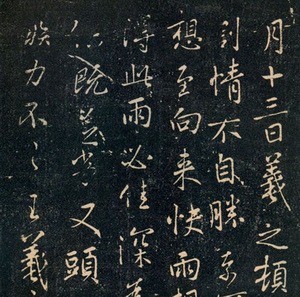 月十三日羲之頓
割情不自勝奈
想至向來快雨想
得此雨必佳深
又頭
疾力不王羲